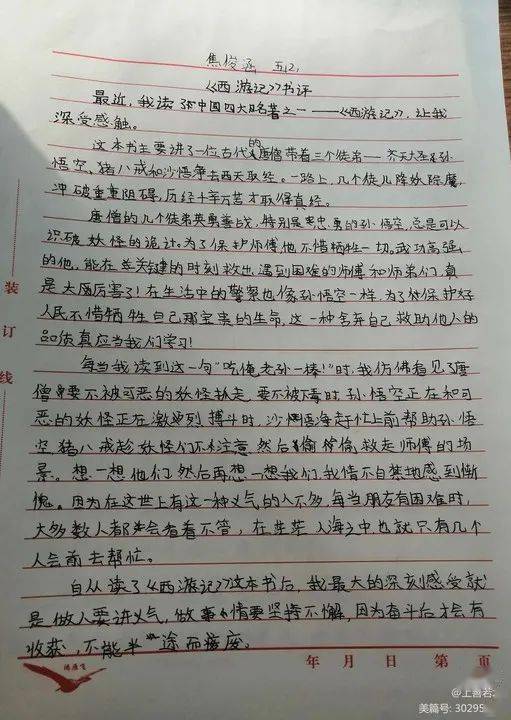 焦俊涵 五12,
《西游记》书评
最近,我读了中国四大名著之一——《西游记》,让我
深受感触。
这本书主要讲了一位古代的唐僧带着三个徒弟——齐天大圣孙
悟空、猪八戒和沙悟净去西天取经。一路上,几个徒儿降妖除魔,
冲破重重阻碍,历经千辛万苦才取得真经。
唐僧的几个徒弟英勇善战,特别是忠勇的孙悟空,总是可以
识破妖怪的诡计。为了保护师傅他不惜牺牲一切。武功高强
的他,能在关键的时刻救出遇到困难的师傅和师弟们,真
是太厉害了!在生活中的警察也像孙悟空一样,为了保护好
人民不惜牺牲自己那宝贵的生命,这一种舍弃自己救助他人的
品质真应当我们学习!
每当我读到这一句“吃俺老孙一棒!”时,我仿佛看见了唐
僧要不被可恶的妖怪抓走,要不被下毒时,孙悟空正在和可
恶的妖怪正在激烈搏斗时,沙悟净赶忙上前帮助孙悟
空,猪八戒趁妖怪们不注意,然后偷偷救走师傅的场
景。想一想他们,然后再想一想我们,我情不自禁地感到惭
愧。因为在这世上有这一种义气的人不多,每当朋友有困难时,
大多数人都会看不管,在茫茫人海之中也就只有几个
人会前去帮忙。
自从读了《西游记》这本书后,我最大的深刻感受就
是做人要讲义气,做事情要坚持不懈,因为奋斗后才会有
收获,不能半途而废。
装
订
线
鸿雁飞
年 月 日 第 页
@上善若
美篇号: 30295